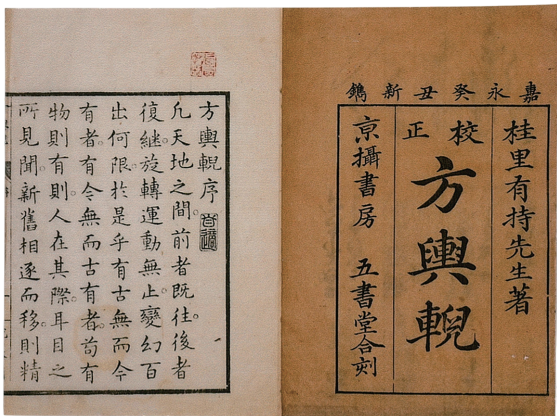 嘉永癸丑新鐫
桂里有持先生著
校正
方輿輗
京攝書房 五書堂合刻
方輿輗序
凡天地之間前者既往後者
復継旋轉運動無止變幻百
出何限於是乎有古無而今
有者有今無而古有者苟有
物則有則人在其際耳目之
所見聞新舊相逐而移則精